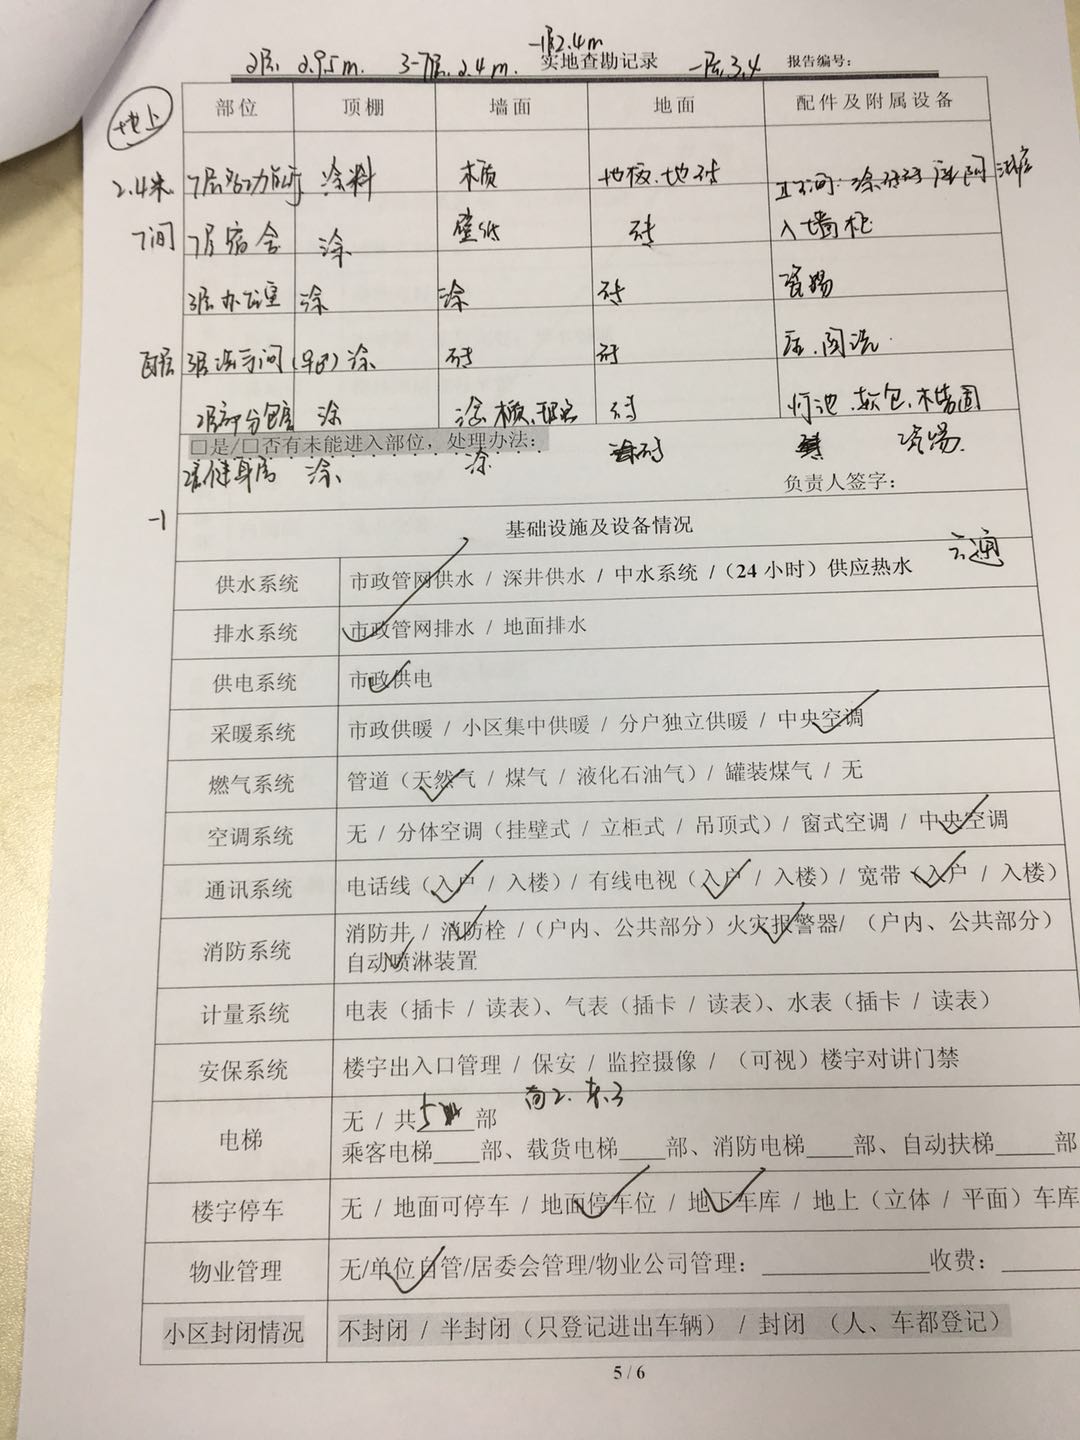 -1层2.4m
2层 2.95m. 3-7层.2.4m. 实地查勘记录 一层3.4 报告编号：
地上
部位 顶棚 墙面 地面 配件及附属设备
2.4米 7层多功能厅 涂料 木质 地板、地砖
7间 7层宿舍 涂 壁纸 砖 入墙柜
3层办公室 涂 涂 砖
3层洗手间 涂 砖 砖
2层部分包房 涂 砖 灯池、软包、木
□是/□否有未能进入部位，处理办法：
2层健身房 涂 涂 砖
负责人签字：
-1
基础设施及设备情况
六通
供水系统 市政管网供水 / 深井供水 / 中水系统 /（24 小时）供应热水
排水系统 市政管网排水 / 地面排水
供电系统 市政供电
采暖系统 市政供暖 / 小区集中供暖 / 分户独立供暖 / 中央空调
燃气系统 管道（天然气 / 煤气 / 液化石油气）/ 罐装煤气 / 无
空调系统 无 / 分体空调（挂壁式 / 立柜式 / 吊顶式）/ 窗式空调 / 中央空调
通讯系统 电话线（入户 / 入楼）/ 有线电视（入户 / 入楼）/ 宽带（入户 / 入楼）
消防系统 消防井 / 消防栓 /（户内、公共部分）火灾报警器/ （户内、公共部分）
自动喷淋装置
计量系统 电表（插卡 / 读表）、气表（插卡 / 读表）、水表（插卡 / 读表）
安保系统 楼宇出入口管理 / 保安 / 监控摄像 / （可视）楼宇对讲门禁
南2.东3
电梯 无 / 共5部
乘客电梯____部、载货电梯____部、消防电梯____部、自动扶梯_____部
楼宇停车 无 / 地面可停车 / 地面停车位 / 地下车库 / 地上（立体 / 平面）车库
物业管理 无/单位自管/居委会管理/物业公司管理：______________收费：______
小区封闭情况 不封闭 / 半封闭（只登记进出车辆） / 封闭 （人、车都登记）
5 / 6